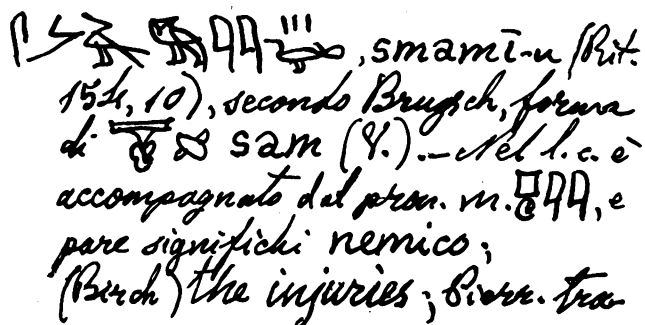 , smamī-u (Rit.
154, 10), secondo Brugsch, forma
di sam (V.). - Nel l. c. è
accompagnato dal pron. m. , e
pare significhi nemico;
(Birch) the injuries; Pierr. tra-